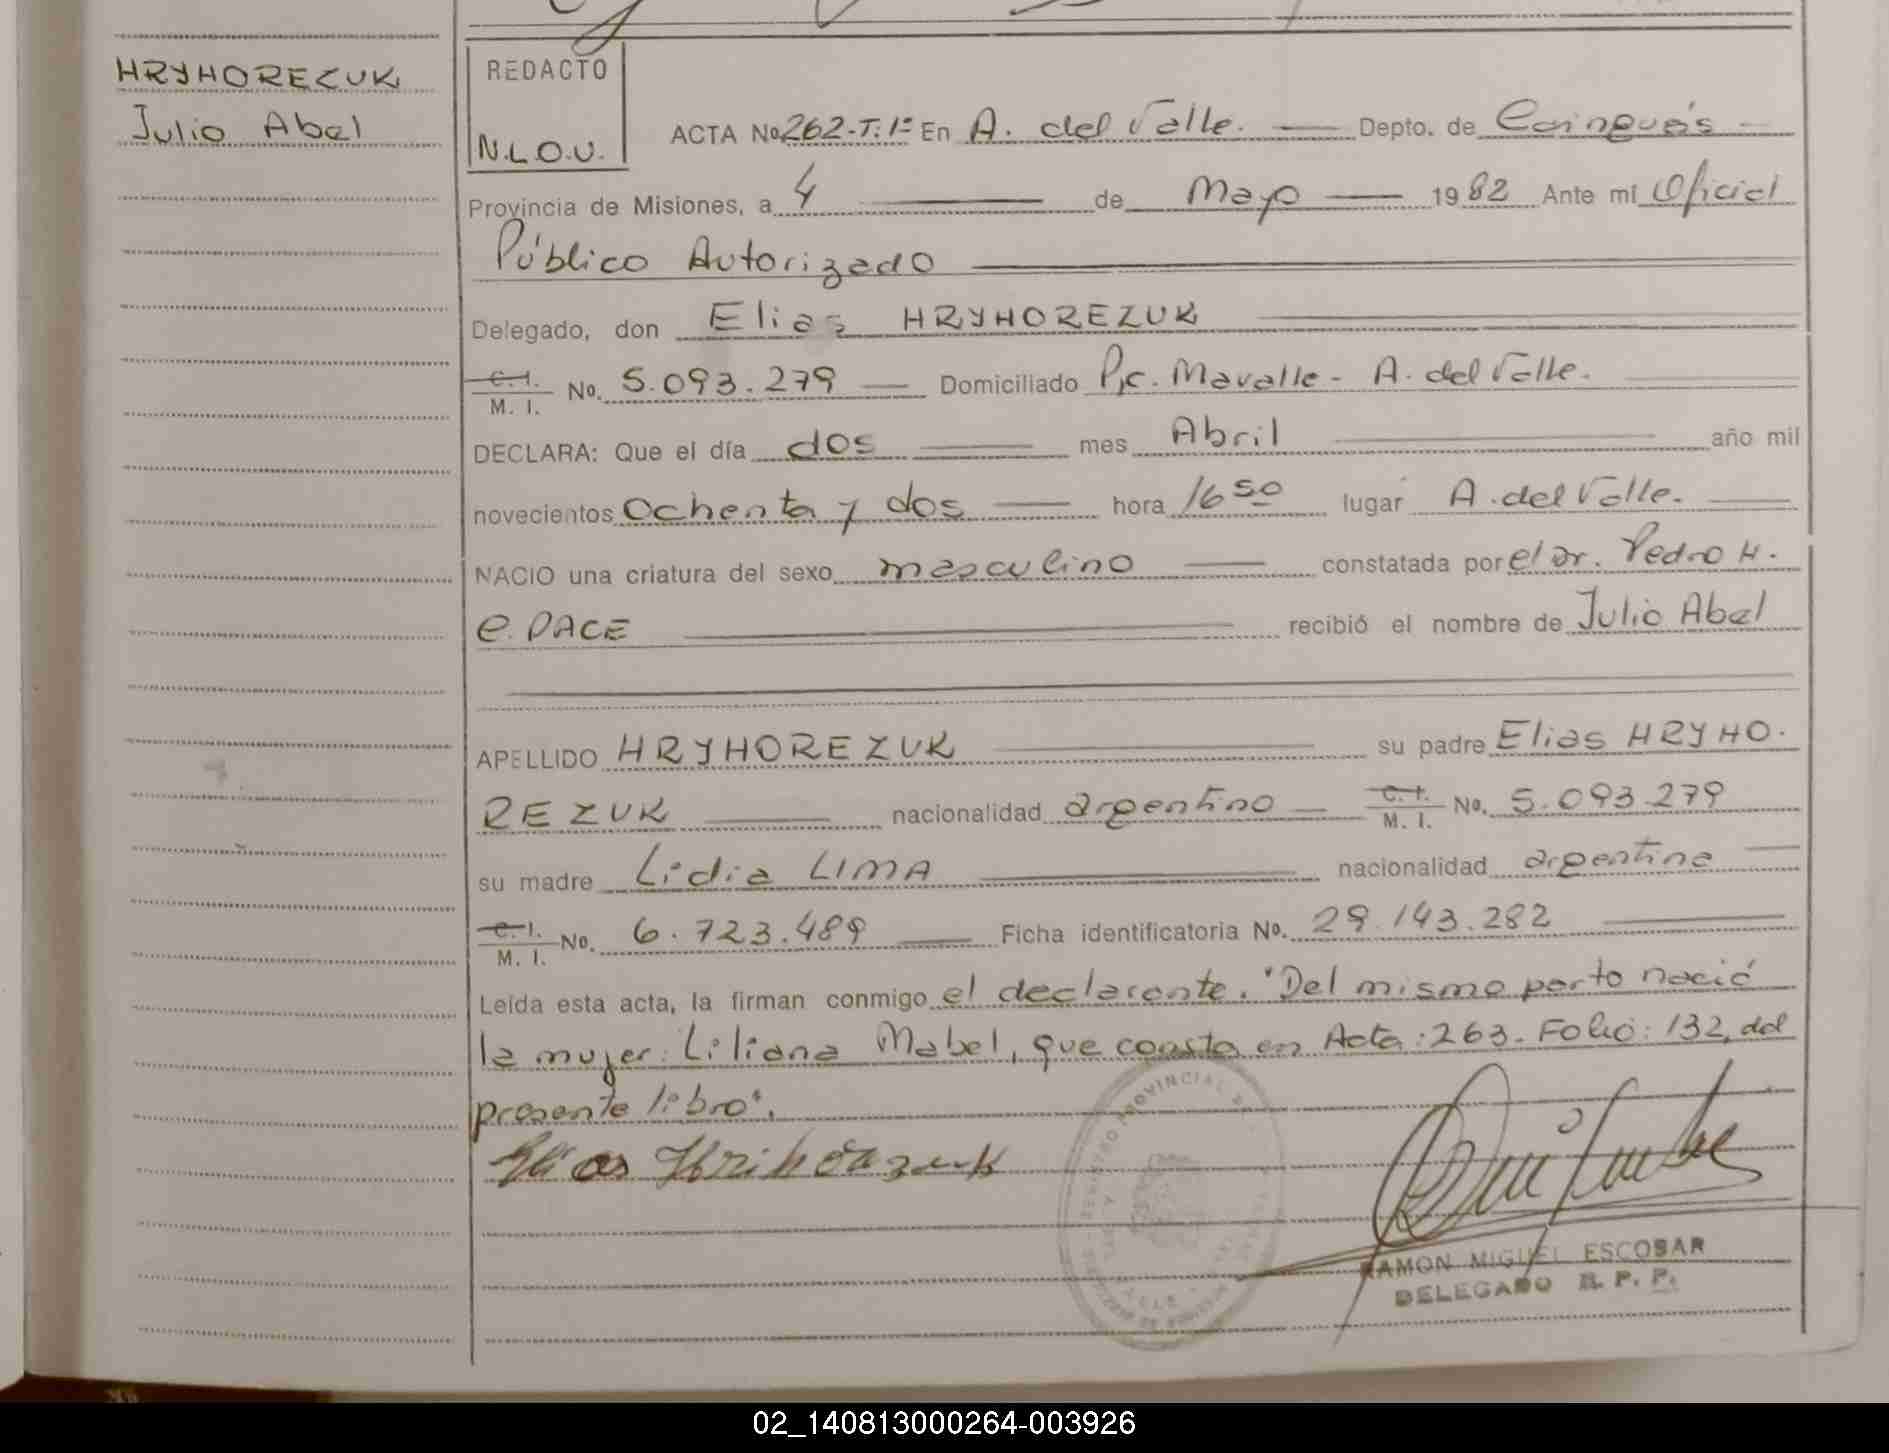 HRYHOREZUK
Julio Abel
REDACTO
N.L.O.U.
ACTA No. 262-T:1º En A. del Valle. Depto. de Cainguás
Provincia de Misiones, a 4 de Mayo 1982 Ante mi Oficial
Público Autorizado
Delegado, don Elias HRYHOREZUK
C. I. / M. I. No. 5.093.279 Domiciliado Pic. Mavalle - A. del Valle.
DECLARA: Que el día dos mes Abril año mil
novecientos ochenta y dos hora 16 50 lugar A. del Valle.
NACIO una criatura del sexo masculino constatada por el Dr. Pedro H.
e. PACE recibió el nombre de Julio Abel
APELLIDO HRYHOREZUK su padre Elias HRYHO-
REZUK nacionalidad argentino C. I. / M. I. No. 5.093.279
su madre Lidia LIMA nacionalidad argentina
C. I. / M. I. No. 6.723.489 Ficha identificatoria No. 29.143.282
Leída esta acta, la firman conmigo el declarante. "Del mismo parto nació
la mujer: Liliana Mabel, que consta en Acta: 263. Folio: 132, del
presente libro".
RAMON MIGUEL ESCOBAR
DELEGADO R. P. P.
02_140813000264-003926